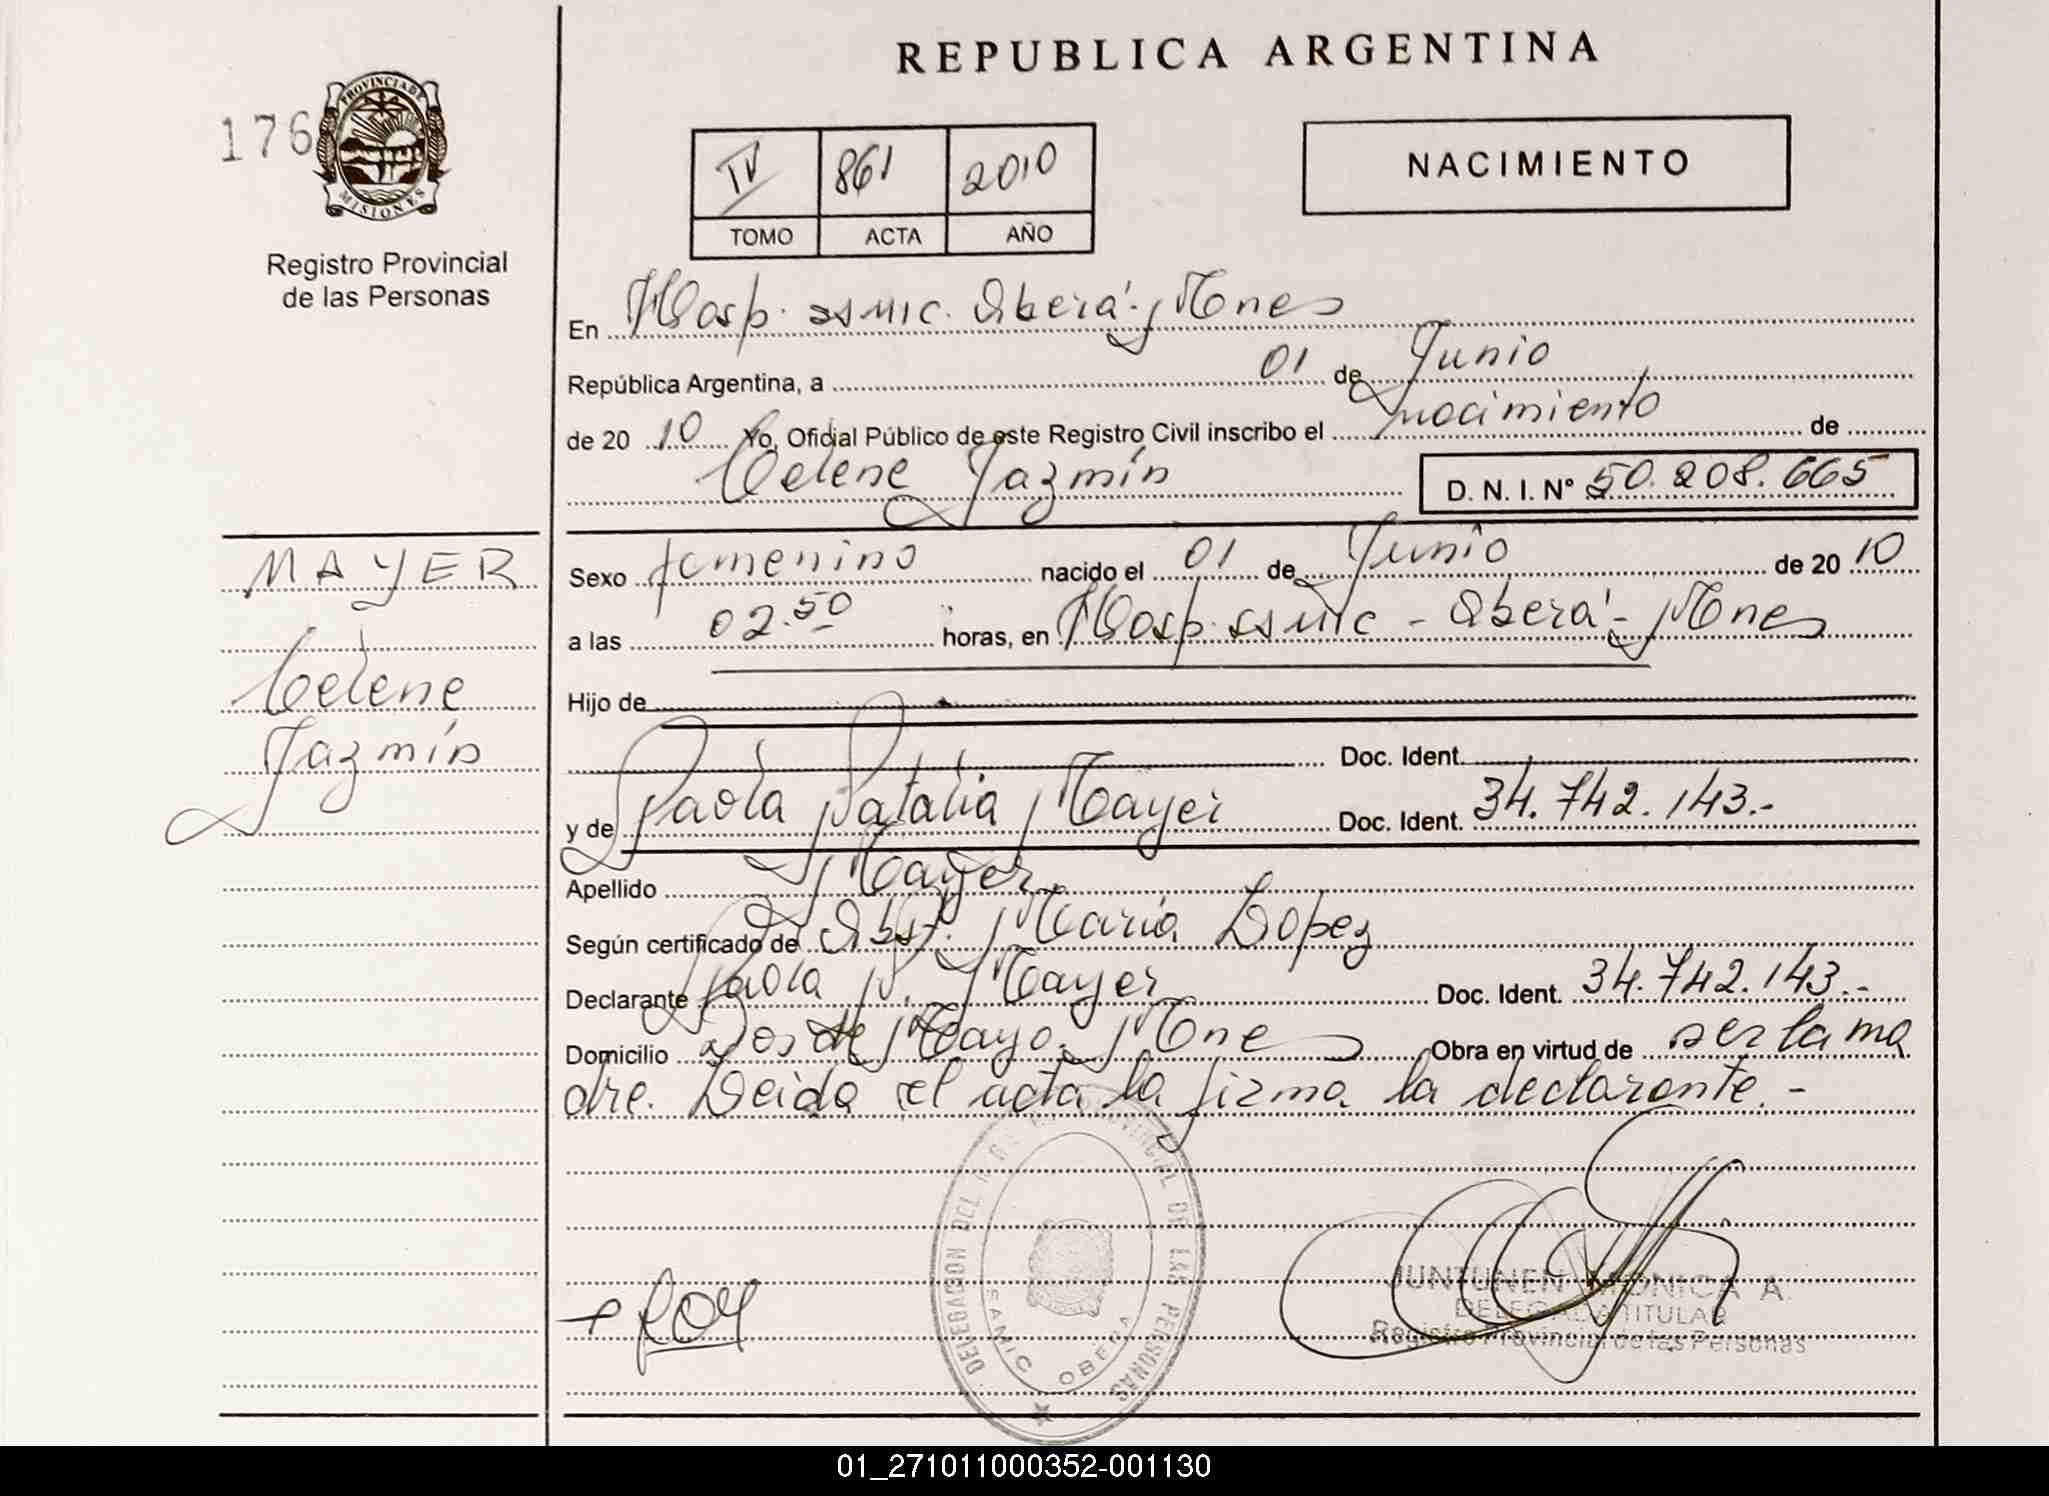 REPUBLICA ARGENTINA
176
PROVINCIA DE
MISIONES
Registro Provincial
de las Personas
IV 861 2010
TOMO ACTA AÑO
NACIMIENTO
En Hosp. SSMIC. Oberá - Mnes
República Argentina, a 01 de Junio
de 2010 Yo, Oficial Público de este Registro Civil inscribo el nacimiento de
Celene Jazmín D. N. I. N° 50.208.665
MAYER
Celene
Jazmín
Sexo femenino nacido el 01 de Junio de 2010
a las 02.50 horas, en Hosp. SSMIC - Oberá - Mnes
Hijo de
Doc. Ident.
y de Paola Natalia Mayer Doc. Ident. 34.742.143.-
Apellido Mayer
Según certificado de Obst. María Lopez
Declarante Paola N. Mayer Doc. Ident. 34.742.143.-
Domicilio Dos de Mayo. Mnes Obra en virtud de ser la ma
dre. Leida el acta la firma la declarante.-
DELEGACION DEL REG. PROVINCIAL DE LAS PERSONAS
SAMIC OBERA
JUNTUNEN MONICA A.
DELEGADA TITULAR
Registro Provincial de las Personas
01_271011000352-001130